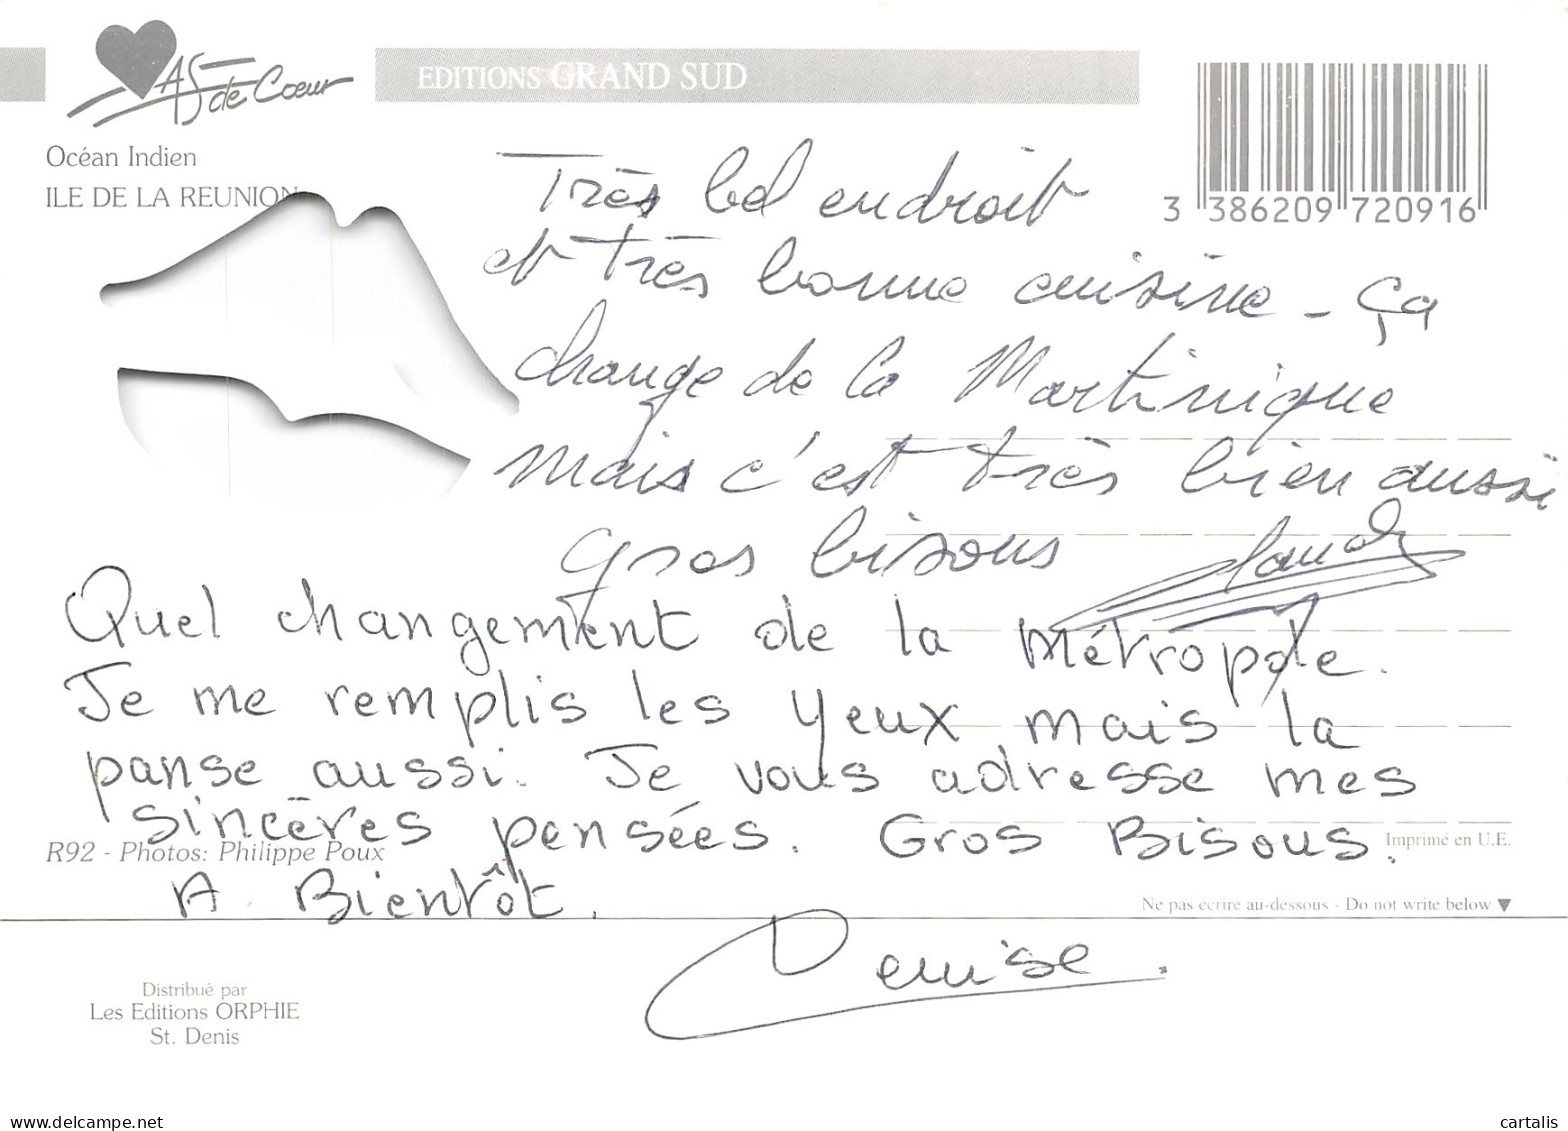 As de Cœur
EDITIONS GRAND SUD
Océan Indien
ILE DE LA REUNION
3 386209 720916
Très bel endroit
et très bonne cuisine - ça
change de la Martinique
mais c'est très bien aussi
gros bisous
Quel changement de la Métropole.
Je me remplis les yeux mais la
panse aussi. Je vous adresse mes
sincères pensées. Gros Bisous.
R92 - Photos: Philippe Poux
Imprimé en U.E.
A Bientôt.
Ne pas écrire au-dessous - Do not write below ▼
Denise.
Distribué par
Les Editions ORPHIE
St. Denis
My-pcards.delcampe.net
cartalis